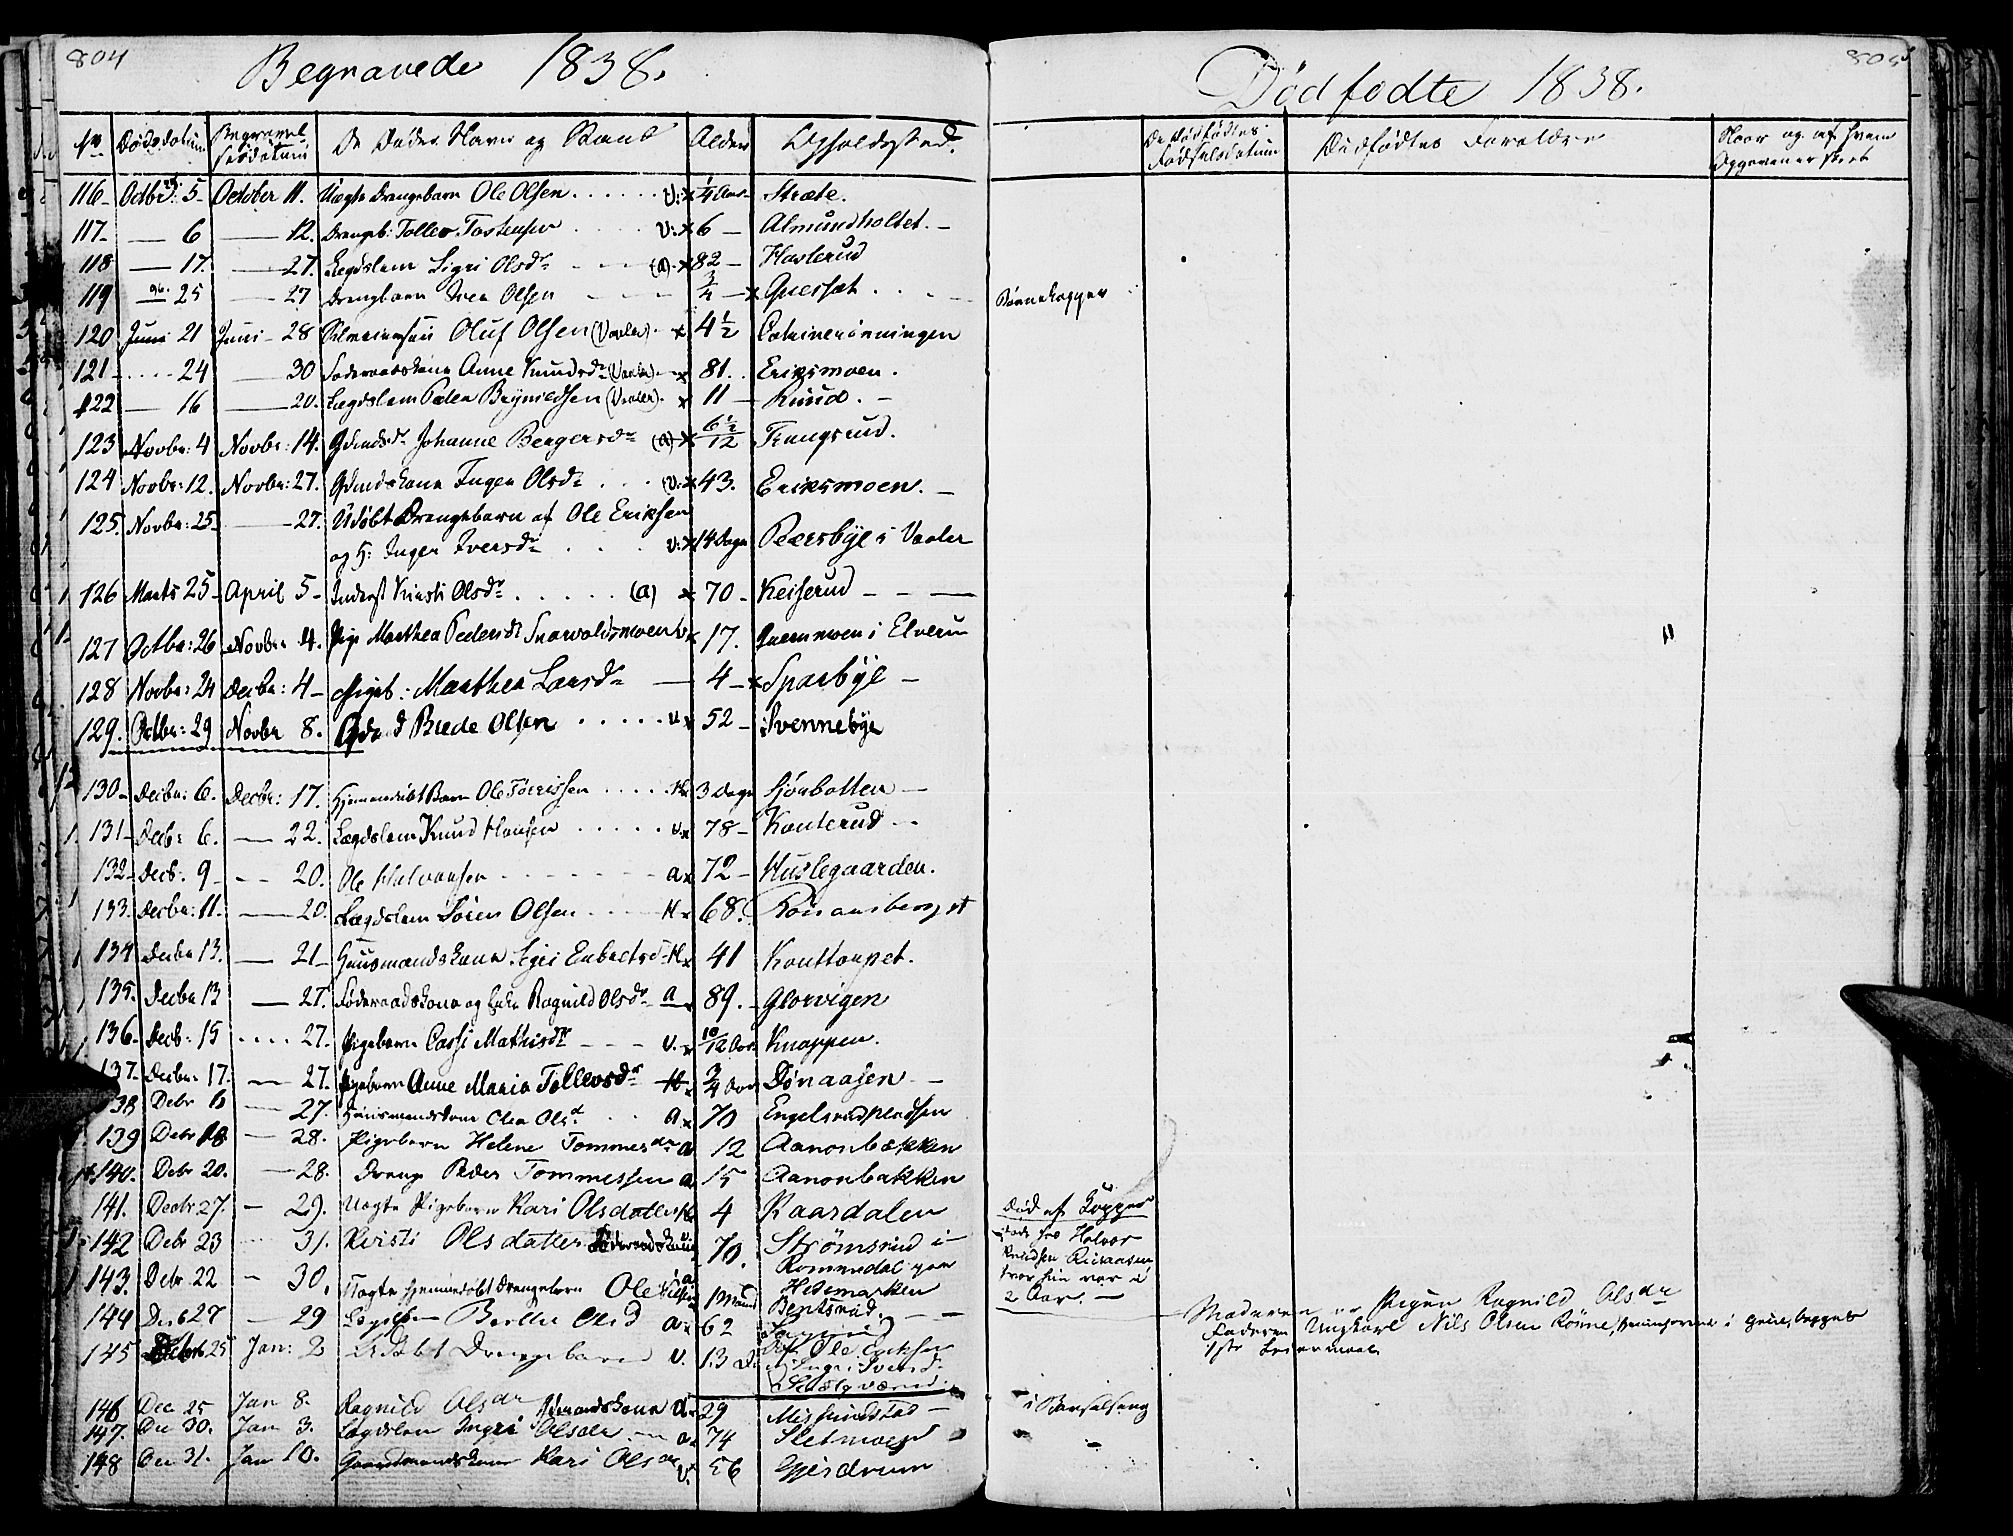 804
Begravede 1838.
No Dødsdatum Begravelsesdatum De Dødes Navn og Stand Alder Opholdssted.
116 Octbr: 5 October 11. Uægte Drengebarn Ole Olsen V: x 1/4 Aar Stræte.
117 — 6 — 12. Drengeb: Tollev Tostensen V: x 6 — Almundholtet. —
118 — 17. — 27. Lægdslem Sigri Olsdr (a) x 82 — Hasterud
119 — 25 — 27 Drengbarn Iver Olsen 3/4 — x Quessæt
120 Juni 21 Juni — 28 Oluf Olsen (Vaaler) x 4 1/2
121 24 — 30 Føderaadskone Anne Knudsdr (Vaaler) x 81. Eriksmoen.
122 — 16 — 20. Lægdslem Peder Brynildsen (Vaaler) x 11 — Ruud. —
123 Novbr: 4 Novbr: 14. Gdmdsdr Johanne Bergersdr (a) x 6 1/2/12 Trangsrud.
124 Novbr: 12. Novbr: 27. Gdmdskone Inger Olsdr (V: x 43. Eriksmoen. —
125. Novbr: 25 — 27. Udøbt Drengebarn af Ole Eriksen
og H: Inger Iversdr V: x 14 Dage Peersbye i Vaaler
126 Marts 25 — April 5 — Inderst Kirsti Olsdr (a) x 70 — Keiserud — — —
127 Octbr: 26 Novbr 4. Pige Marthea Pedersdr Snarvoldsmoen V x 17. moen i Elverum
128 Novbr: 24 Decbr: 4 — Pigeb: Marthea Larsdr — 4 — x Sparbye —
129. Octbr: 29 Novbr 8. Brede Olsen V x 52 — Svennebye
130 — Decbr: 6. Decbr: 17. Hjemmedøbt Barn Ole Tørrissen H x 3 Dage Sjøabotten —
131 — Decbr 6. — 22. Lægdslem Knud Hansen V x 78 — Kauterud —
132 — Decb: 9 — — 20. Ole Halvorsen a x 72 — Huslegaarden.
133. Decbr: 11. — 20. Lægdslem Søren Olsen H x 68.
134 Decbr 13. — 21 — Huusmandskone Sigri Enbretsdr H x 41 Kouttorpet.
135. Decbr 13 — 27. Føderaadskone og Enke Ragnild Olsdr a x 89. — Glorvigen
136. Decb: 15 27. Pigebarn Cassi Mathisdr V. x 10/12 Aar Knappen.
137. Decbr: 17. — 27. Pigebarn Anne Maria Tollevsdr H x 3/4 Aar Dønaasen —
138 Debr 6 — 27. Huusmandskone Olea Olsd a x 70 Engelsrudpladsen
139 Debr 18 — 28. Pigebarn Helene Tommesdr a 12 Aanonbækken
140. Debr 20. — 28. Dreng Peder Tommessen a 15 Aanonbakken
141. Decbr 27. — 29. Uægte Pigebarn Kari Olsdatter H 4 Kaardalen
142 Debr 23 31. Kristi Olsdatter Føderaadskone 70. Strømsrud i
Rommedal paa
Hedemarken
143. Debr 22 — 30. Uægte hjemmedøbt Drengebarn Ole Nilsen a 1 Maaned Bentsrud.
144 Dec 27 — 29 Berthe Olsd a x 62
145 Decbr 25 Jan: 2 Udøbt Drengebarn V. 13 D. af Ole Eriksen
146 Dec 25 Jan 8. Ragnild Olsdr Gdmandskone a x 29 Missundstad —
147. Dec 30. Jan 3. Lægdslem Ingri Olsdr — a x 74 Sletmoen
148 Dec 31. Jan 10. Gaardmandskone Kari Olsdr V. 56 Gjerdrum
805
Dødfødte 1838.
De Dødfødtes Fødselsdatum Dødfødtes Forældre Naar og af hvem Opgaven er skeet
Børnekopper
Død af Kopper
hos Halvor
Knudsen
hvor hun var i
2 Aar. —
Moderen er Pigen Ragnild Olsdr
Faderen Ungkarl Nils Olsen Rønne,
1ste Leiermaal.
i Barselseng